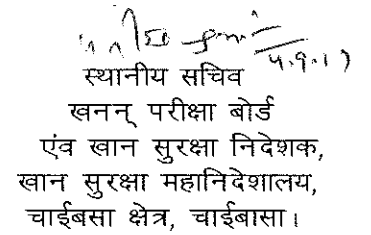 4.9.17
स्थानीय सचिव
खनन् परीक्षा बोर्ड
एंव खान सुरक्षा निदेशक,
खान सुरक्षा महानिदेशालय,
चाईबसा क्षेत्र, चाईबासा।